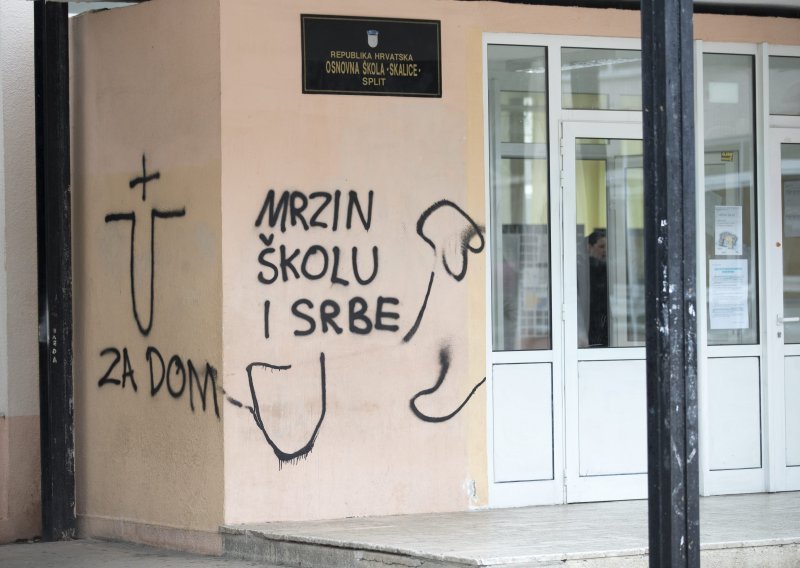 REPUBLIKA HRVATSKA
OSNOVNA ŠKOLA "SKALICE"
SPLIT
MRZIN
ŠKOLU
I SRBE
ZA DOM